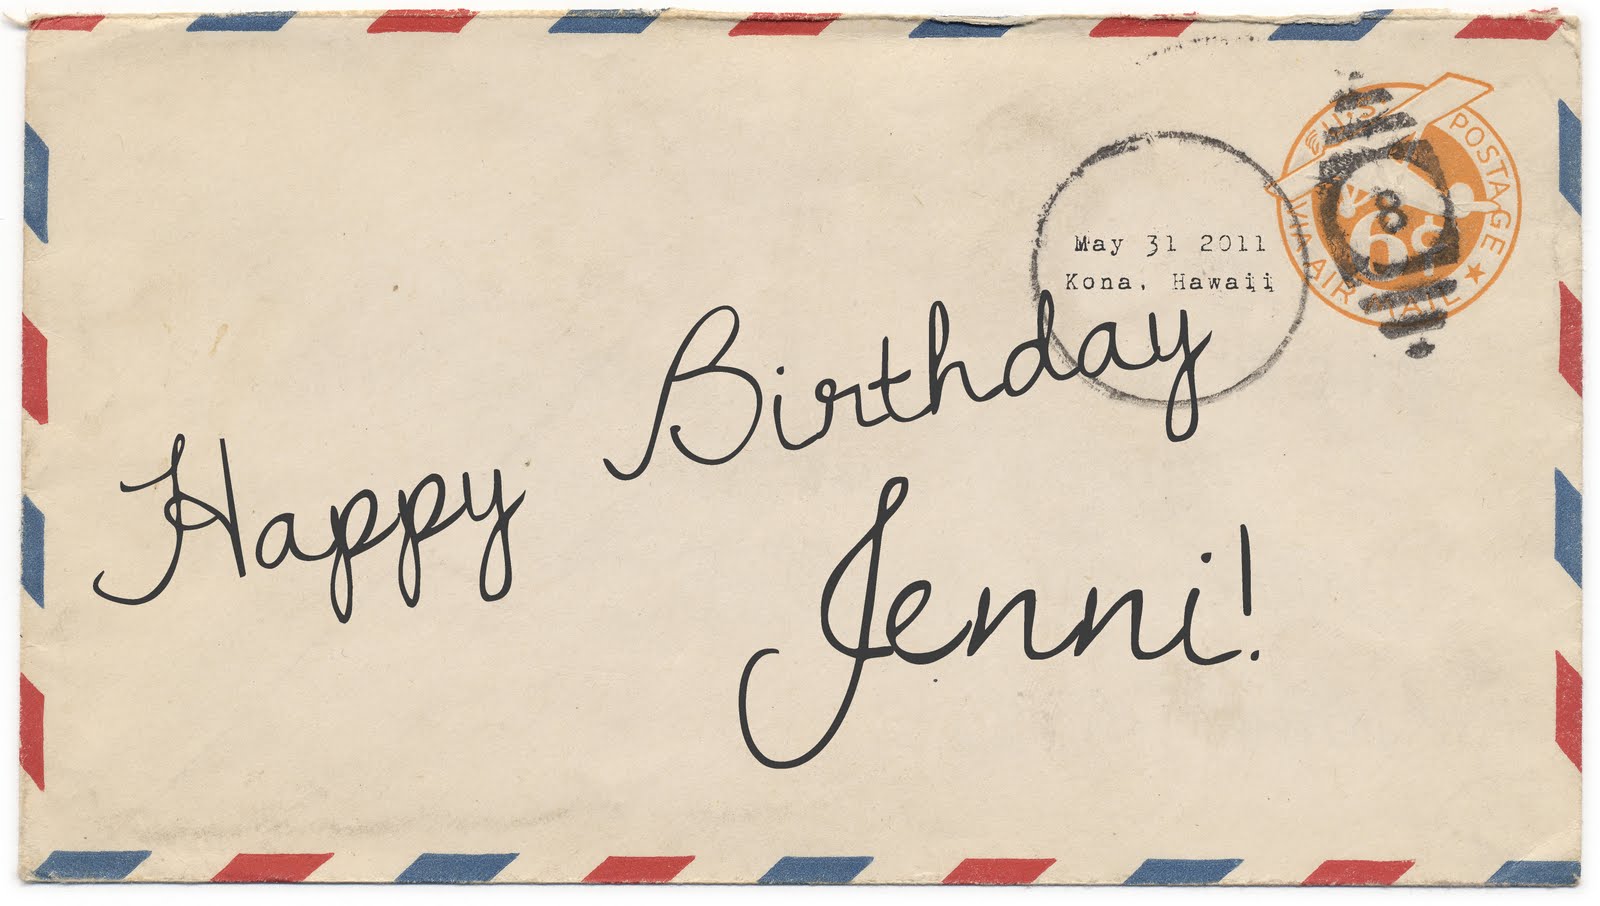 U.S. POSTAGE
8
6¢
VIA AIR MAIL
May 31 2011
Kona, Hawaii
Happy Birthday
Jenni!